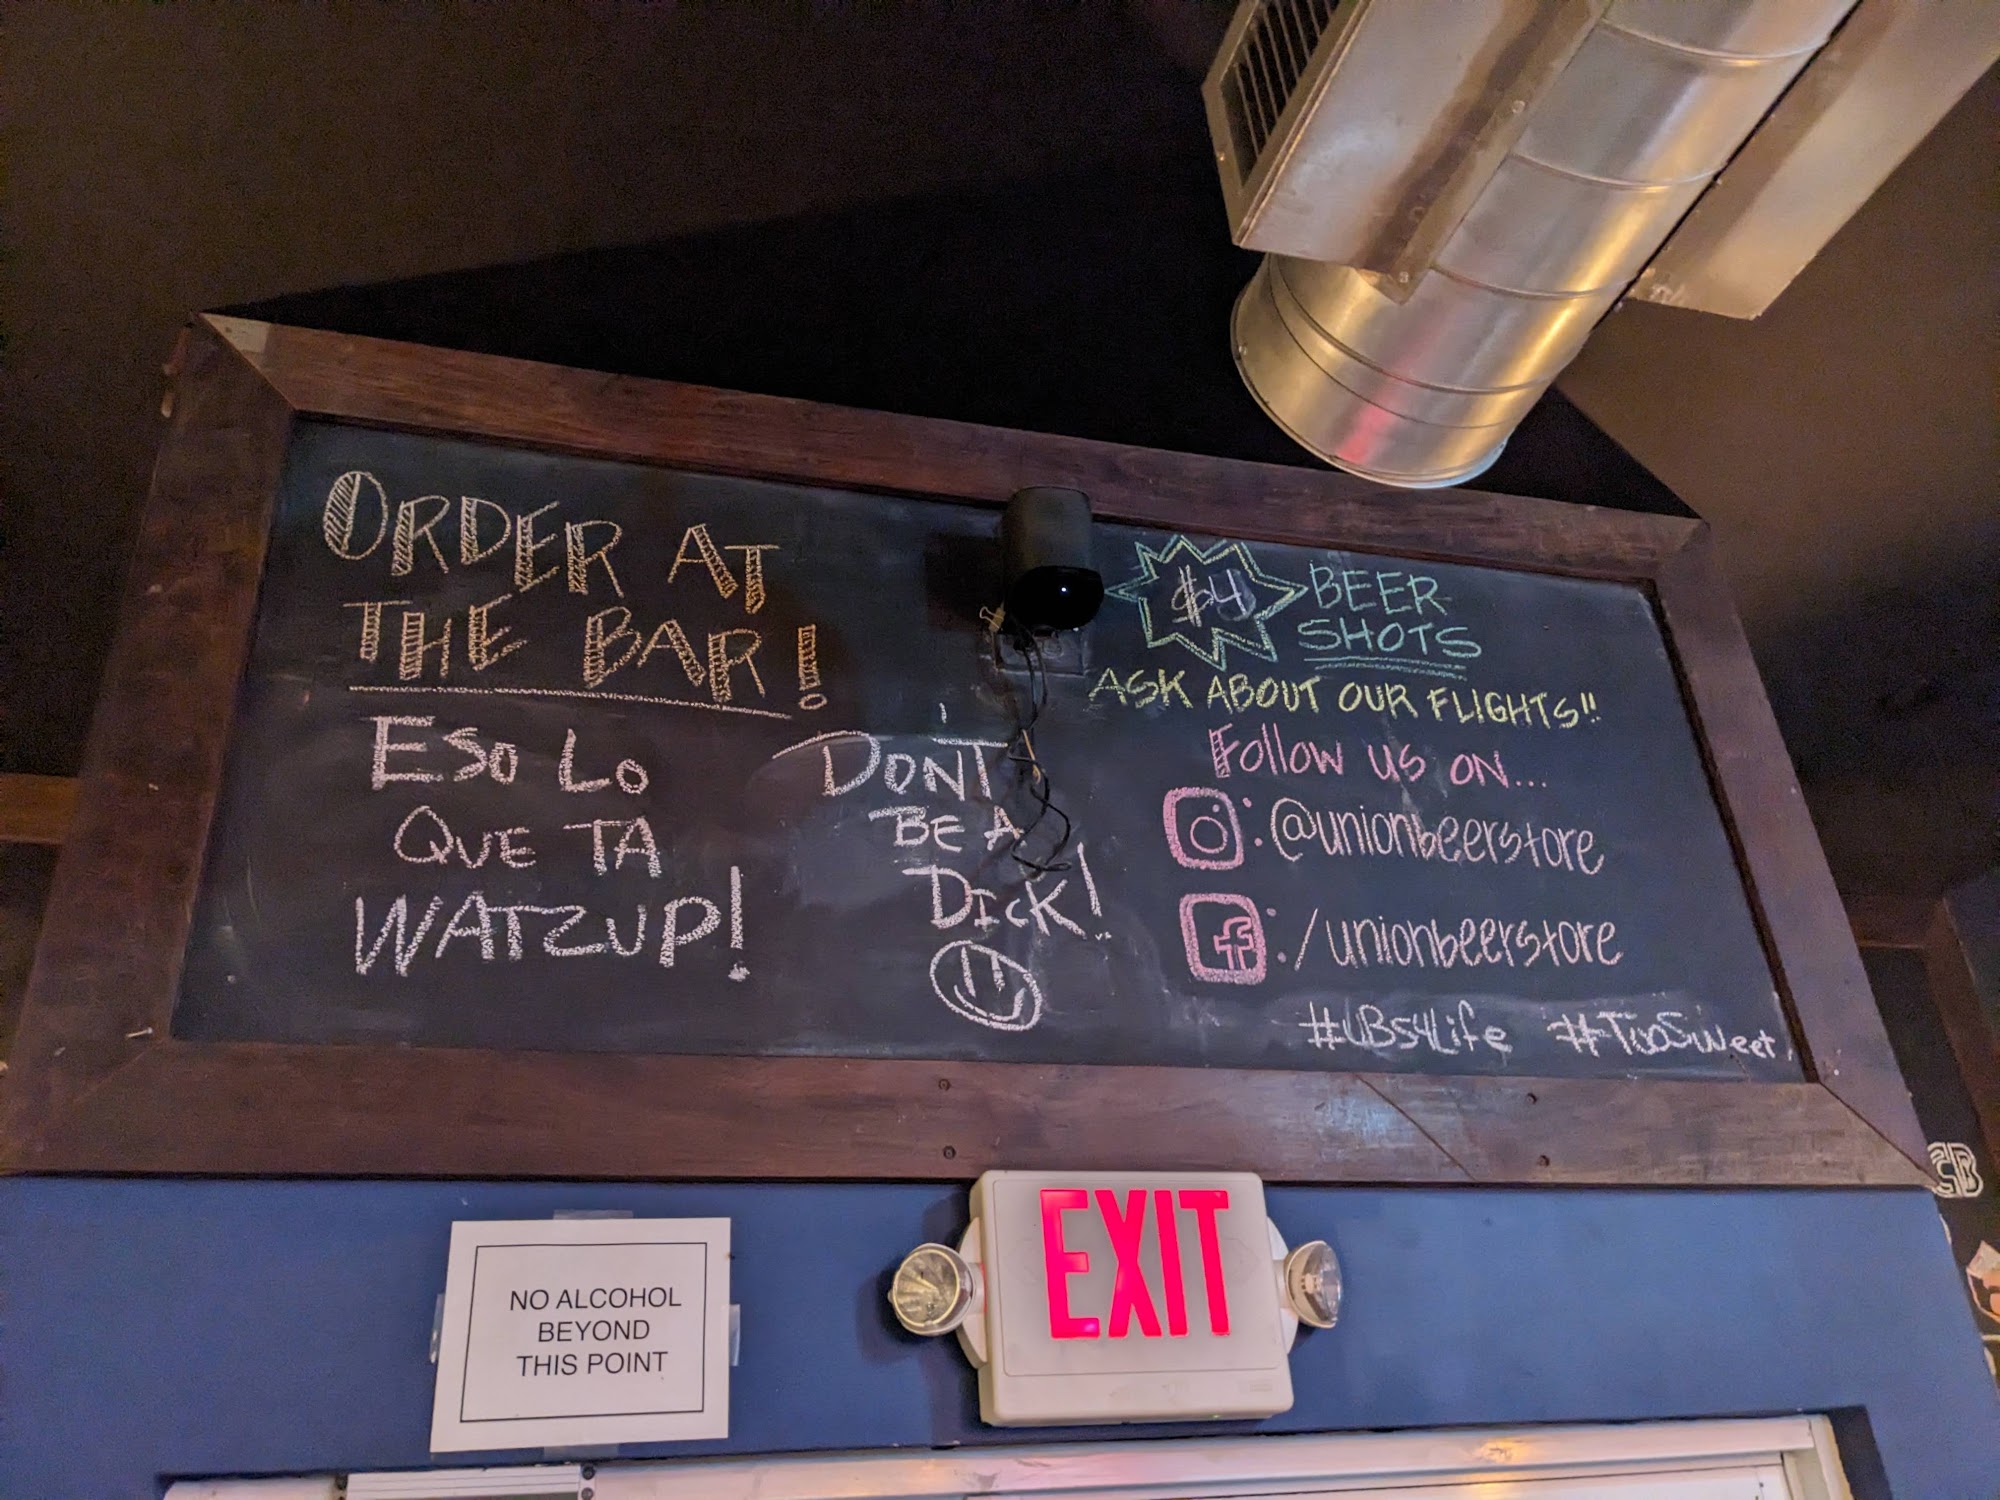 ORDER AT
THE BAR!
ESO LO
QUE TA
WATZUP!
DON'T
BE A
DICK!
$4
BEER
SHOTS
ASK ABOUT OUR FLIGHTS!!
Follow us on...
: @unionbeerstore
: /unionbeerstore
#UBS4Life #TooSweet
NO ALCOHOL
BEYOND
THIS POINT
EXIT
CB